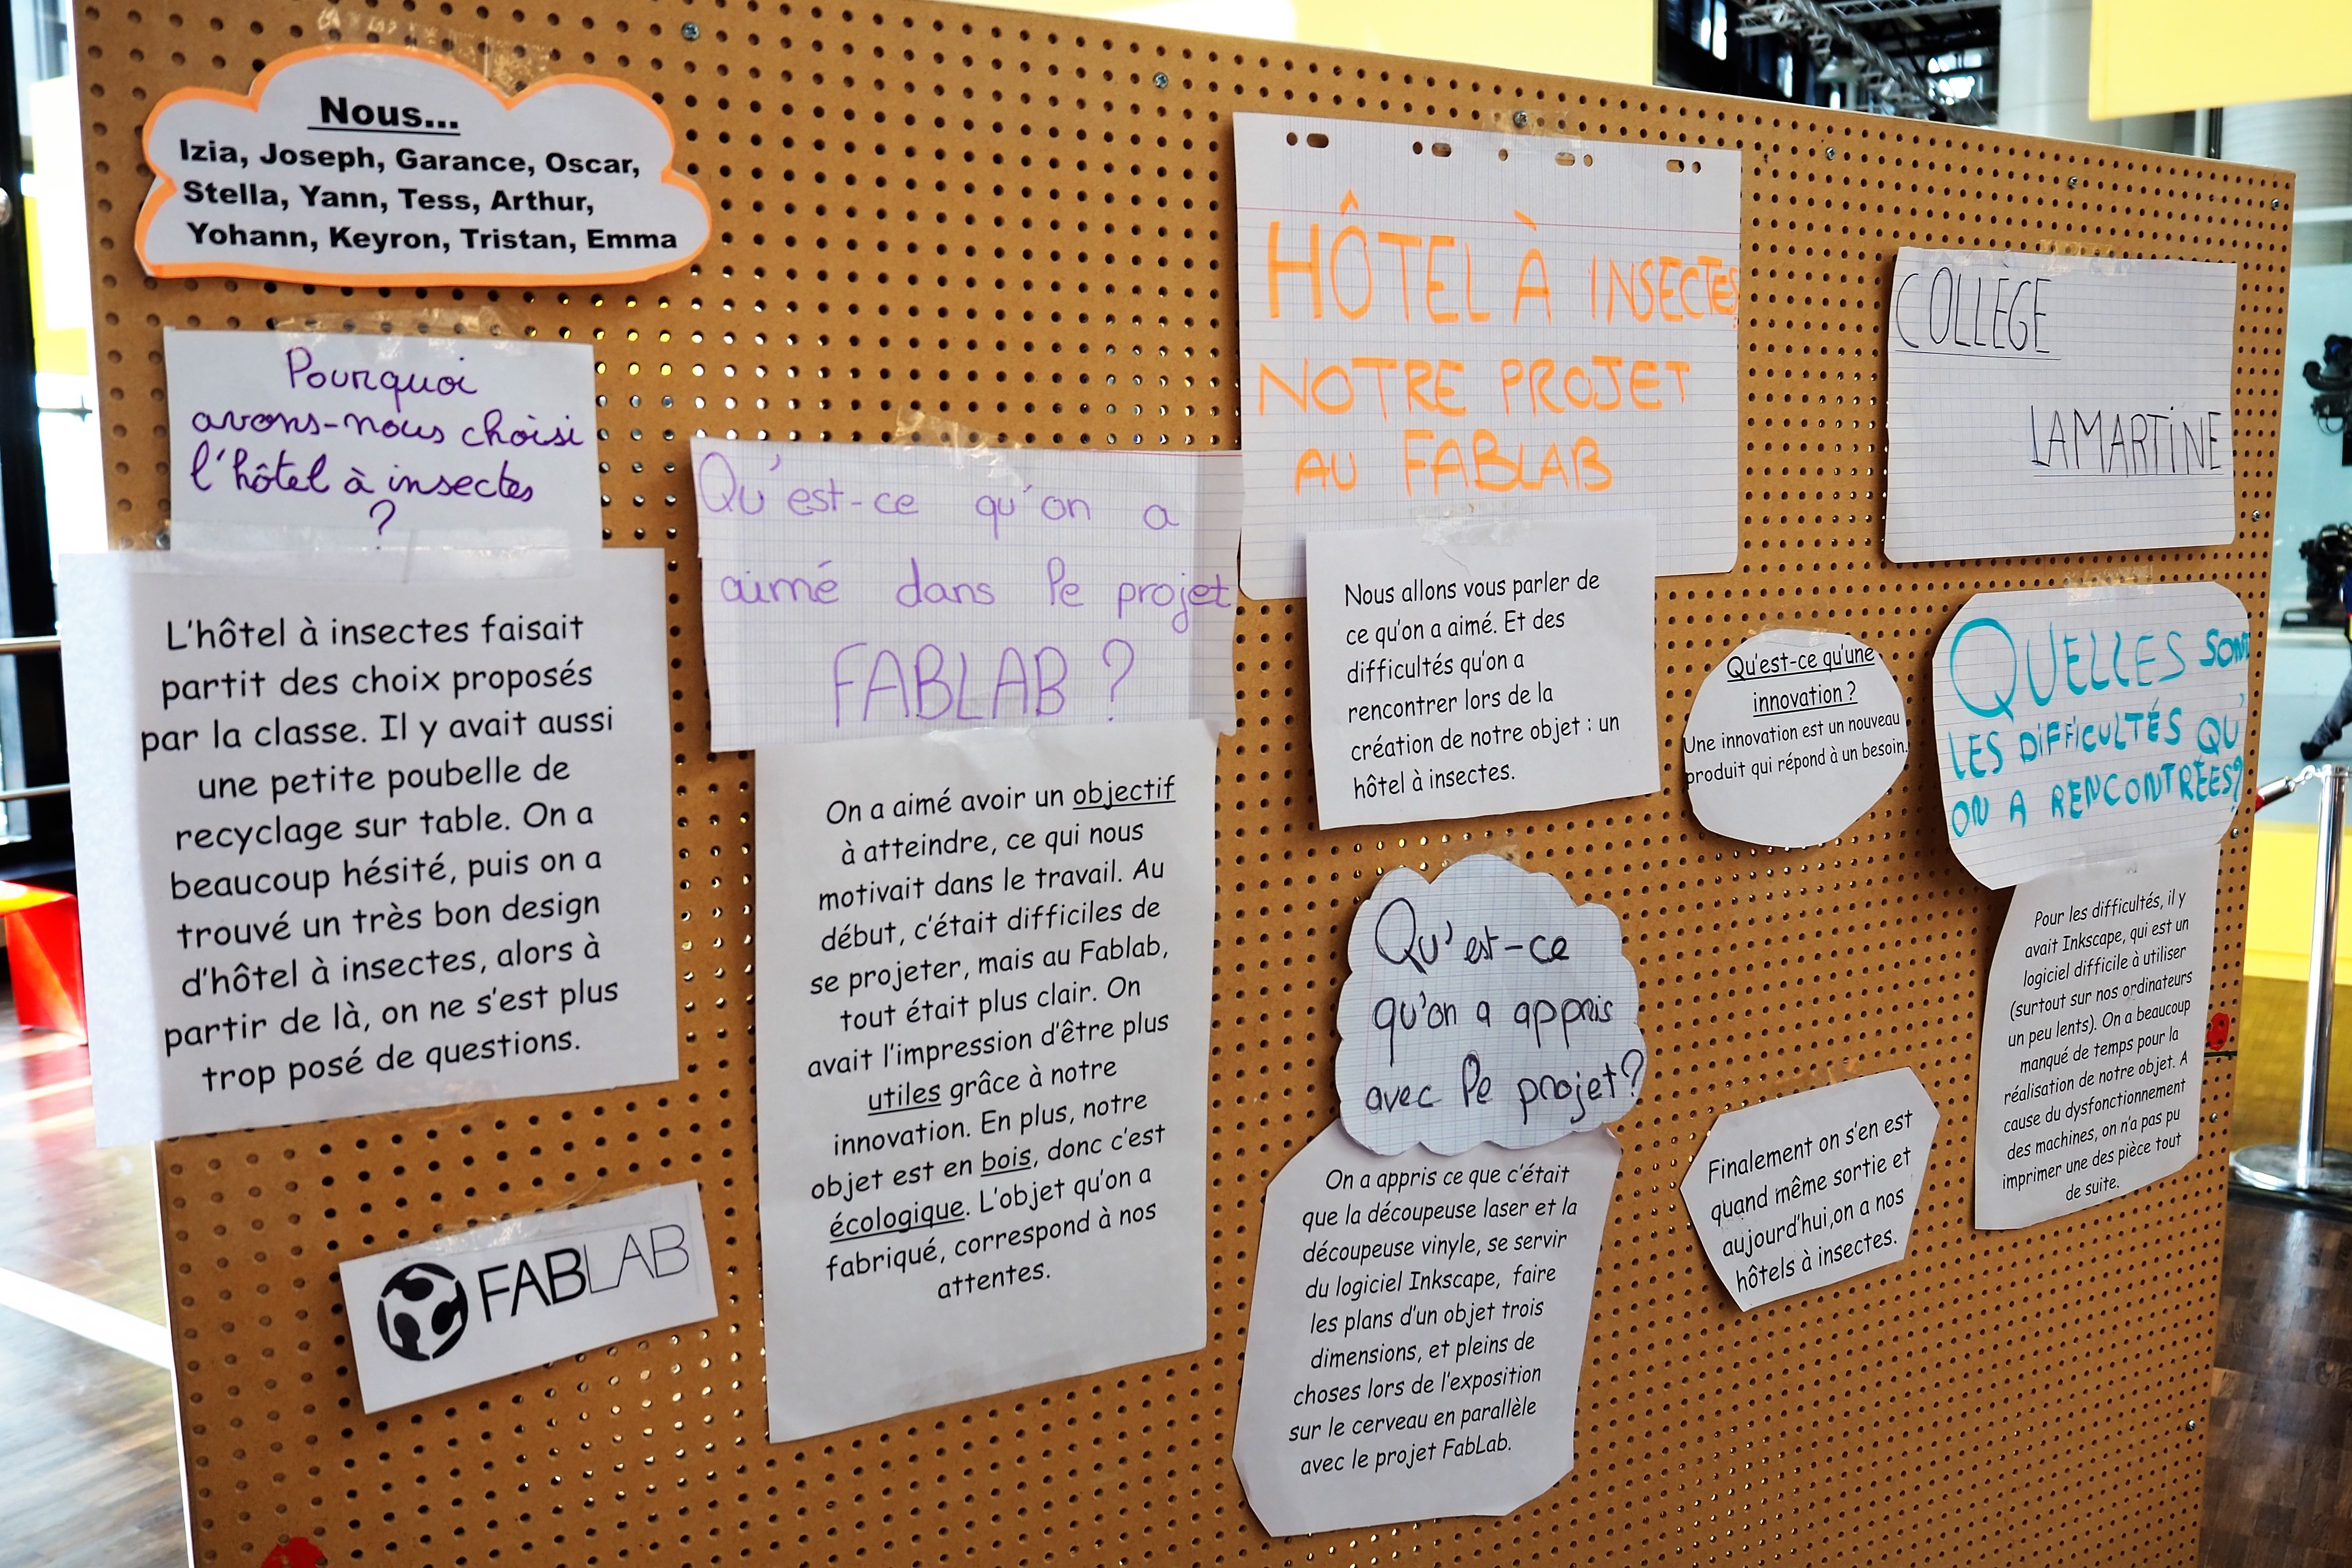 Nous...
Izia, Joseph, Garance, Oscar,
Stella, Yann, Tess, Arthur,
Yohann, Keyron, Tristan, Emma
Pourquoi
avons-nous choisi
l'hôtel à insectes
?
L'hôtel à insectes faisait
partit des choix proposés
par la classe. Il y avait aussi
une petite poubelle de
recyclage sur table. On a
beaucoup hésité, puis on a
trouvé un très bon design
d'hôtel à insectes, alors à
partir de là, on ne s'est plus
trop posé de questions.
FABLAB
Qu'est-ce qu'on a
aimé dans le projet
FABLAB ?
On a aimé avoir un objectif
à atteindre, ce qui nous
motivait dans le travail. Au
début, c'était difficiles de
se projeter, mais au Fablab,
tout était plus clair. On
avait l'impression d'être plus
utiles grâce à notre
innovation. En plus, notre
objet est en bois, donc c'est
écologique. L'objet qu'on a
fabriqué, correspond à nos
attentes.
HÔTEL À INSECTES
NOTRE PROJET
AU FABLAB
Nous allons vous parler de
ce qu'on a aimé. Et des
difficultés qu'on a
rencontrer lors de la
création de notre objet : un
hôtel à insectes.
Qu'est-ce
qu'on a appris
avec le projet?
On a appris ce que c'était
que la découpeuse laser et la
découpeuse vinyle, se servir
du logiciel Inkscape, faire
les plans d'un objet trois
dimensions, et pleins de
choses lors de l'exposition
sur le cerveau en parallèle
avec le projet FabLab.
Qu'est-ce qu'une
innovation ?
Une innovation est un nouveau
produit qui répond à un besoin.
COLLÈGE
LAMARTINE
QUELLES SONT
LES DIFFICULTÉS QU'
ON A RENCONTRÉES?
Pour les difficultés, il y
avait Inkscape, qui est un
logiciel difficile à utiliser
(surtout sur nos ordinateurs
un peu lents). On a beaucoup
manqué de temps pour la
réalisation de notre objet. A
cause du dysfonctionnement
des machines, on n'a pas pu
imprimer une des pièce tout
de suite.
Finalement on s'en est
quand même sortie et
aujourd'hui,on a nos
hôtels à insectes.